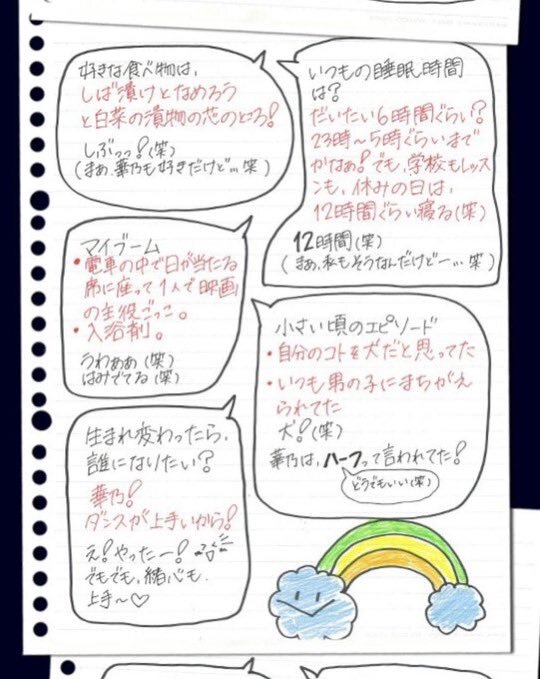 好きな食べ物は、
しば漬けとなめろう
と白菜の漬物の芯のところ!
しぶっっ!(笑)
(まあ、華乃も好きだけど…笑)
いつもの睡眠時間
は?
だいたい6時間ぐらい?
23時〜5時ぐらいまで
かなぁ!でも、学校もレッス
ンも、休みの日は、
12時間ぐらい寝る(笑)
12時間(笑)
(まあ、私もそうなんだけどー…笑)
マイブーム
•電車の中で日が当たる
席に座って1人で映画
の主役ごっこ。
•入浴剤。
うわぁぁ(笑)
はみでてる(笑)
小さい頃のエピソード
•自分のコトを犬だと思ってた
•いつも男の子にまちがえ
られてた
犬!(笑)
華乃は、ハーフって言われてた!
どうでもいい(笑)
生まれ変わったら、
誰になりたい?
華乃!
ダンスが上手いから!
え!やったー!
でもでも、緒心も
上手〜♡